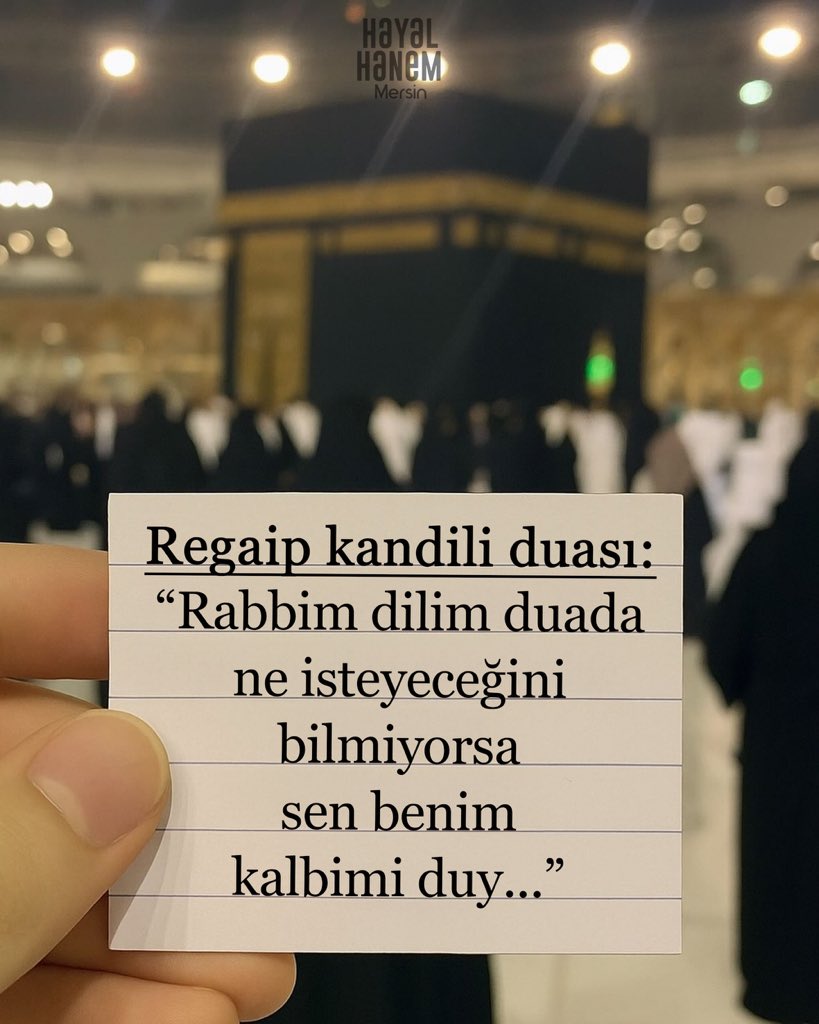 HAYAL
HANEM
Mersin
Regaip kandili duası:
“Rabbim dilim duada
ne isteyeceğini
bilmiyorsa
sen benim
kalbimi duy...”